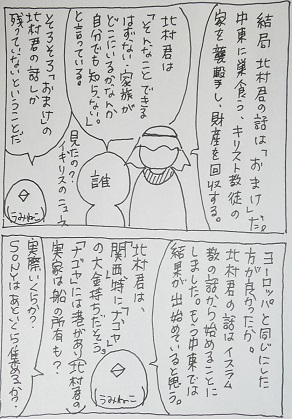 結局 北村君の話は「おまけ」だ。
中東に巣食う、キリスト教徒の
家を襲撃し、財産を回収する。
北村君は
「そんなことできる
はずない・家族が
どこにいるかなんか
自分でも知らない。」
と言っている。
そろそろ「おまけ」の
北村君の話しか
残っていないということだ
うみねこ
誰
見たの?
イギリスのニュース
ヨーロッパと同じにした
方が良かったか。
北村君の話はイスラム
教の話から始めることに
しました。もう中東では
結果が出始めていると思う。
北村君は、
関西、特に「ナゴヤ」
の大金持ちだそう。
「ナゴヤ」には港があり北村君の
実家は船の所有も?
うみねこ
実際いくらか?
SONYはあといくら集めるか?